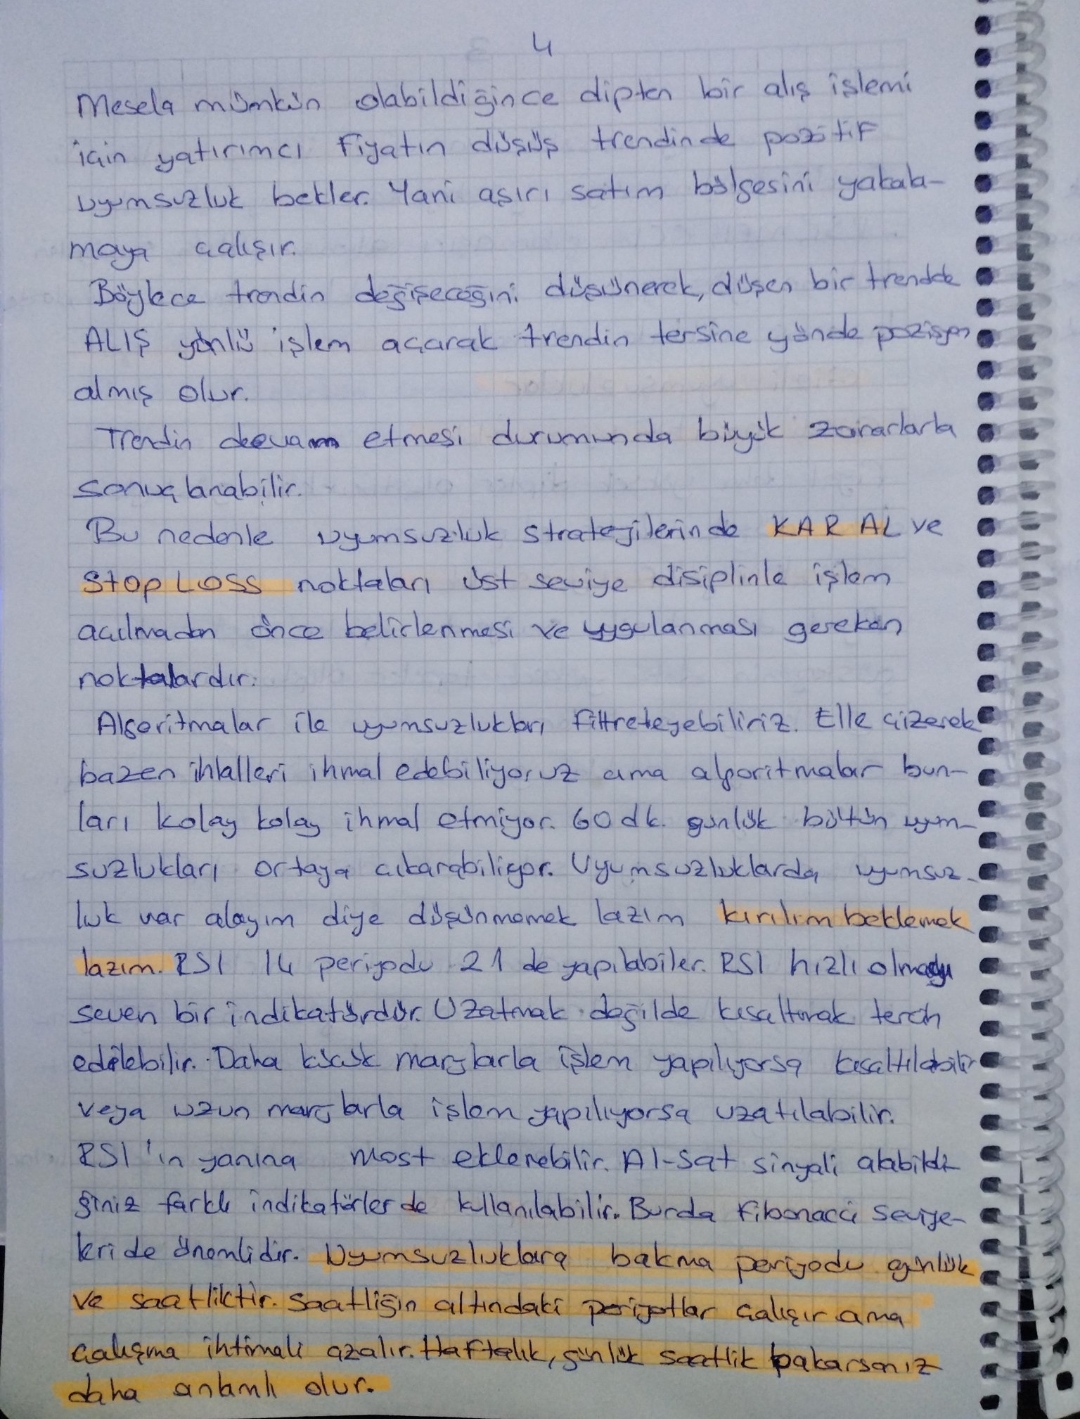 4
Mesela mümkün olabildiğince dipten bir alış işlemi
için yatırımcı fiyatın düşüş trendinde pozitif
uyumsuzluk bekler. Yani aşırı satım bölgesini yakala-
maya çalışır.
Böylece trendin değişeceğini düşünerek, düşen bir trendde
ALIŞ yönlü işlem açarak trendin tersine yönde pozisyon
almış olur.
Trendin devam etmesi durumunda büyük zararlarla
sonuçlanabilir.
Bu nedenle uyumsuzluk stratejilerinde KAR AL ve
Stop LOSS noktaları üst seviye disiplinle işlem
açılmadan önce belirlenmesi ve uygulanması gereken
noktalardır.
Algoritmalar ile uyumsuzlukları filtreleyebiliriz. Elle çizerek
bazen ihlalleri ihmal edebiliyoruz ama algoritmalar bun-
ları kolay kolay ihmal etmiyor. 60 dk. günlük bütün uyum-
suzlukları ortaya çıkarabiliyor. Uyumsuzluklarda uyumsuz-
luk var alayım diye düşünmemek lazım kırılım beklemek
lazım. RSI 14 periyodu 21 de yapılabiler. RSI hızlı olmayı
seven bir indikatördür. Uzatmak değilde kısaltmak terch
edilebilir. Daha küçük marjlarla işlem yapılıyorsa kısaltılabilir
veya uzun marjlarla işlem yapılıyorsa uzatılabilir.
RSI 'ın yanına Most eklenebilir. Al-Sat sinyali alabildi
ğiniz farklı indikatörler de kullanılabilir. Burda Fibonacci Seviye-
leri de önemlidir. Uyumsuzluklara bakma periyodu günlük
ve saatliktir. Saatliğin altındaki periyotlar çalışır ama
çalışma ihtimali azalır. Haftalık, günlük saatlik bakarsanız
daha anlamlı olur.